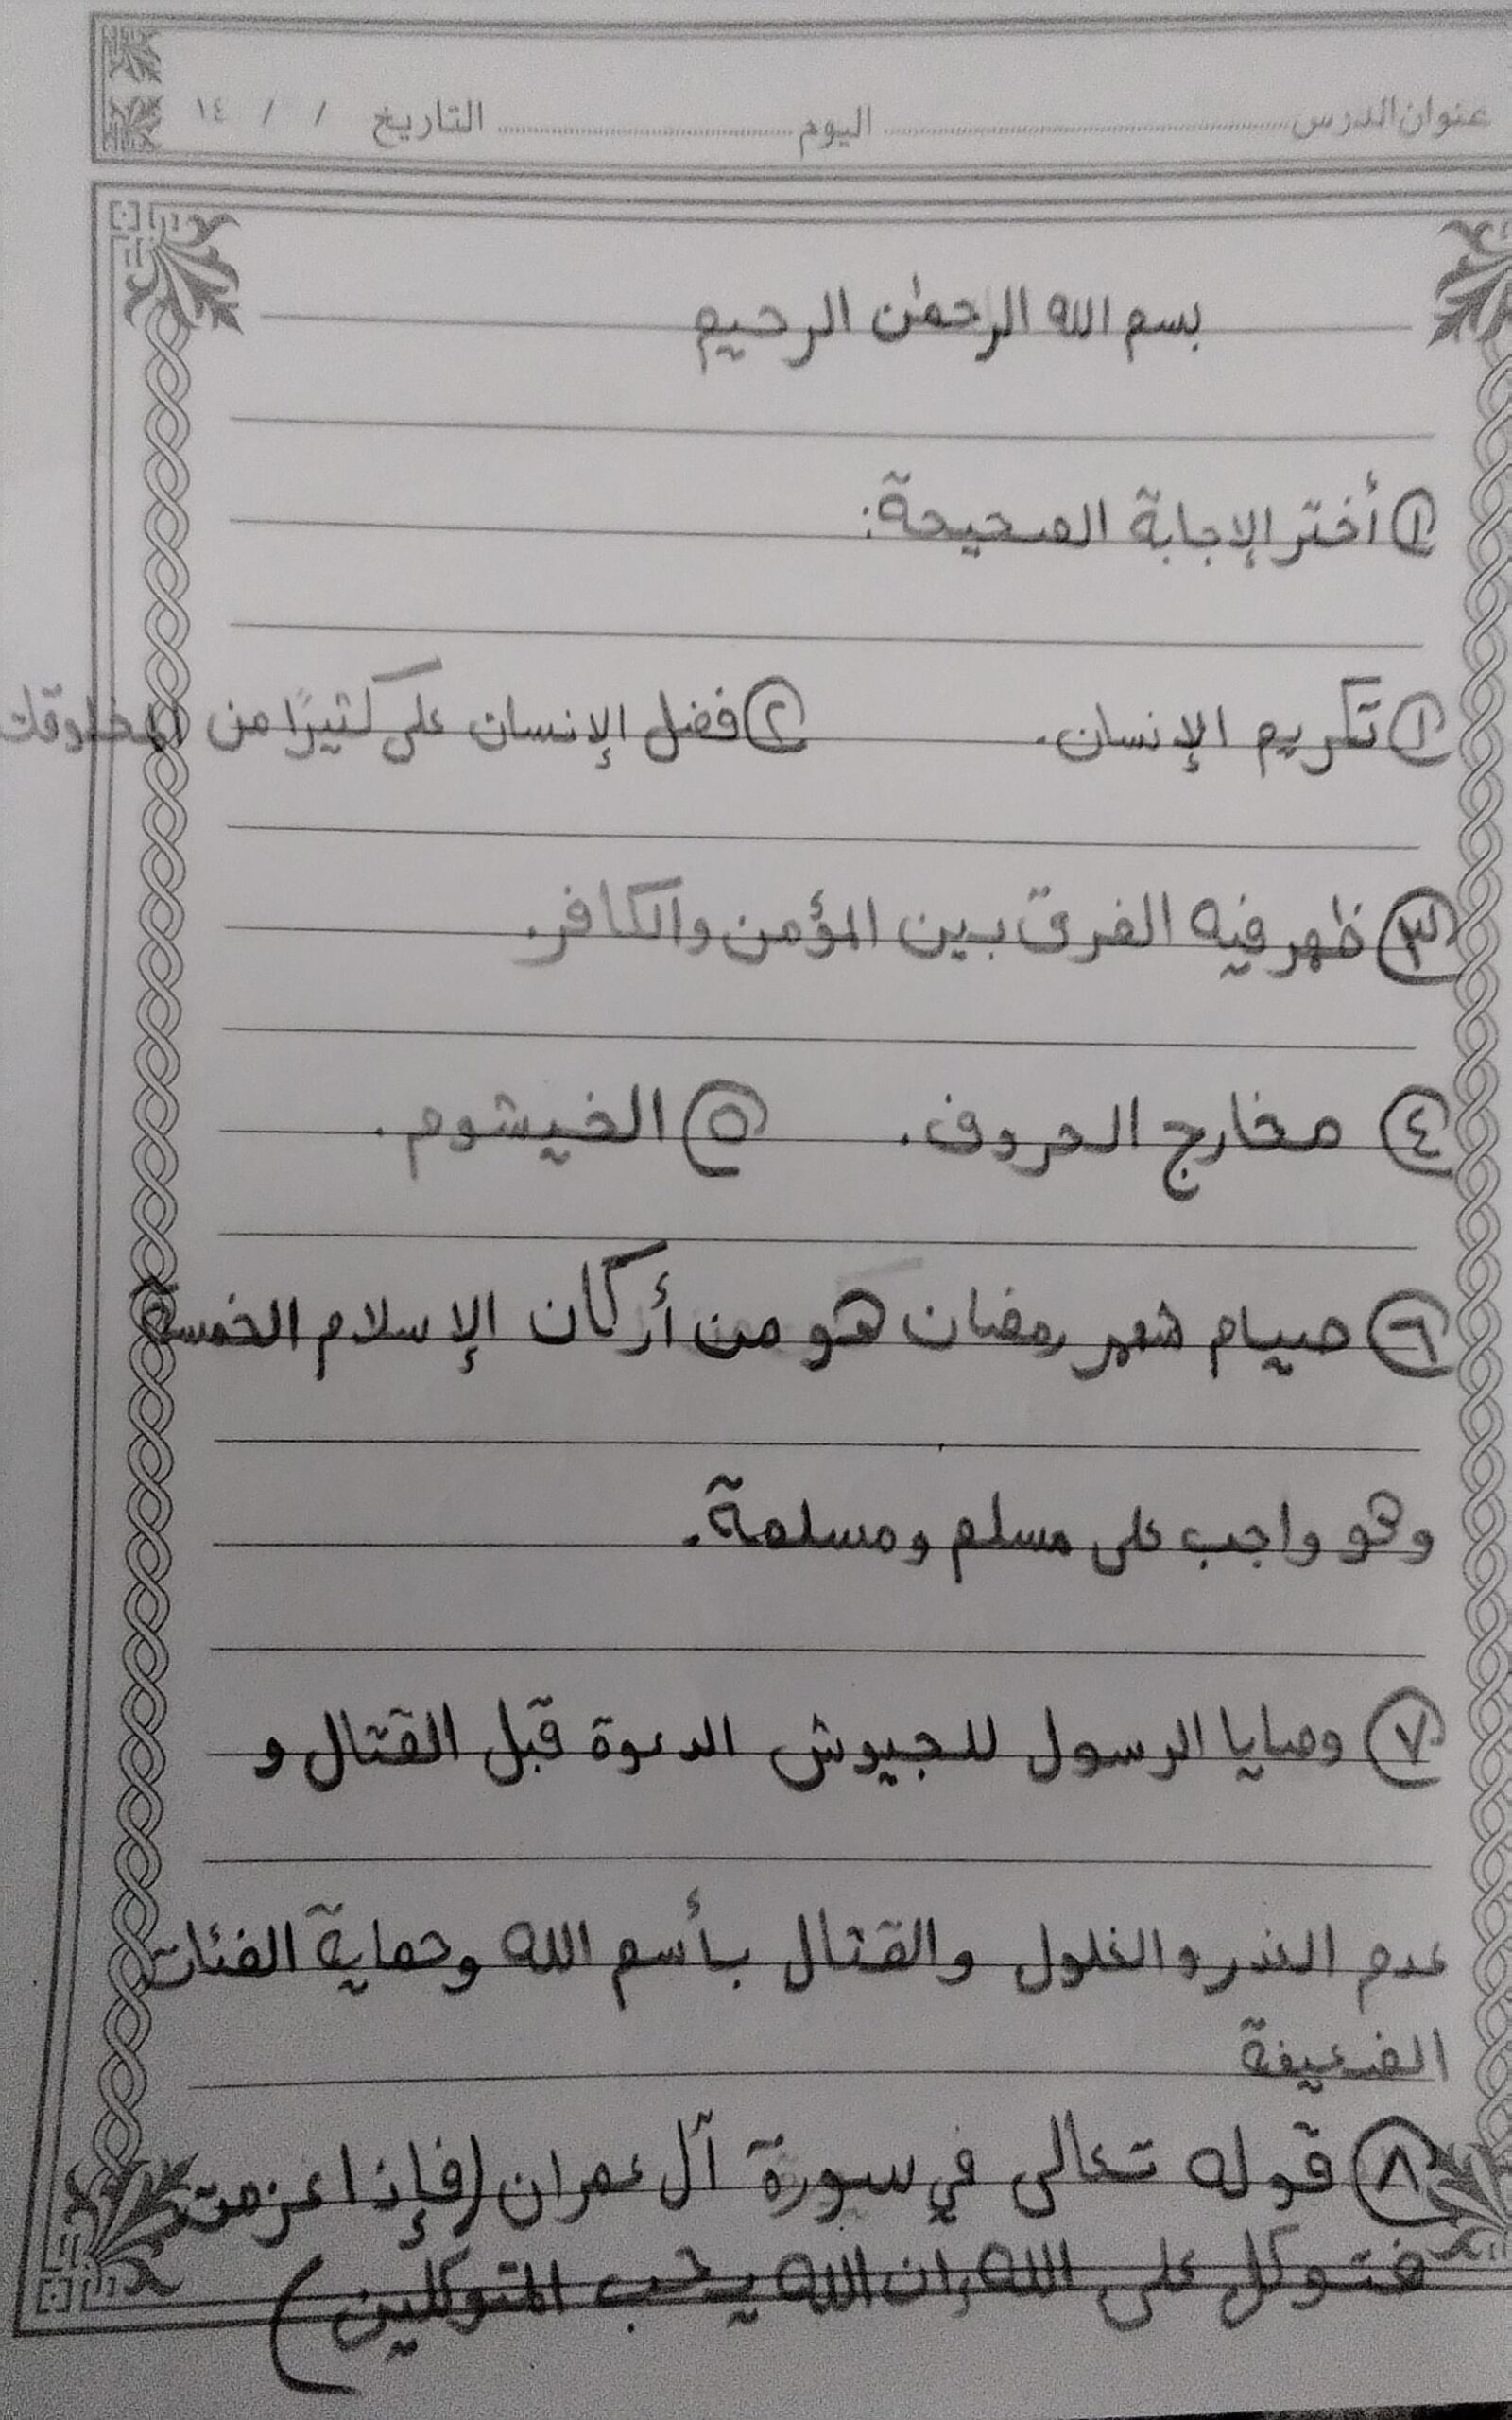 عنوان الدرس ........ اليوم ........ التاريخ / / ١٤
بسم الله الرحمٰن الرحيم
① أختر الإجابة الصحيحة:
① تكريم الإنسان. ② فضل الإنسان على كثيرًا من المخلوقات
③ ظهر فيه الفرق بين المؤمن والكافر.
④ مخارج الحروف. ⑤ الخيشوم.
⑥ صيام شهر رمضان هو من أركان الإسلام الخمسة
وهو واجب على مسلم ومسلمة.
⑦ وصايا الرسول للجيوش الدعوة قبل القتال و
عدم الغدر والغلول والقتال بأسم الله وحماية الفئات
الضعيفة
⑧ قوله تعالى في سورة آل عمران (فإذا عزمت
فتوكل على الله إن الله يحب المتوكلين)